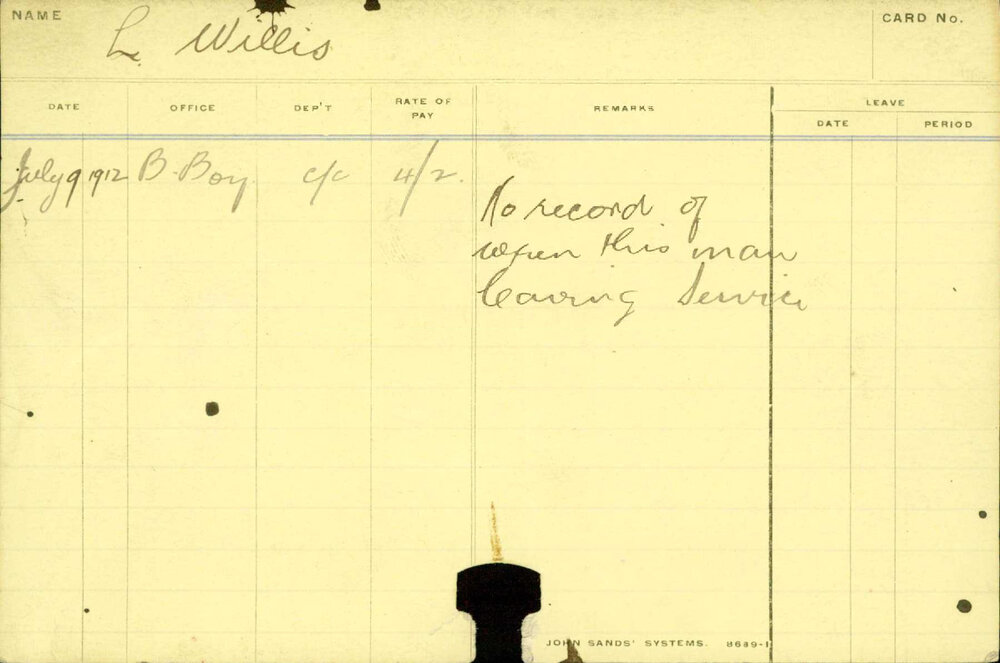 NAME
L. Willis
CARD No.
DATE
OFFICE
DEP'T
RATE OF
PAY
REMARKS
LEAVE
DATE
PERIOD
July 9 1912 B. Boy c/c 4/2.
No record of
when this man
leaving Service
JOHN SANDS' SYSTEMS. 8689-1